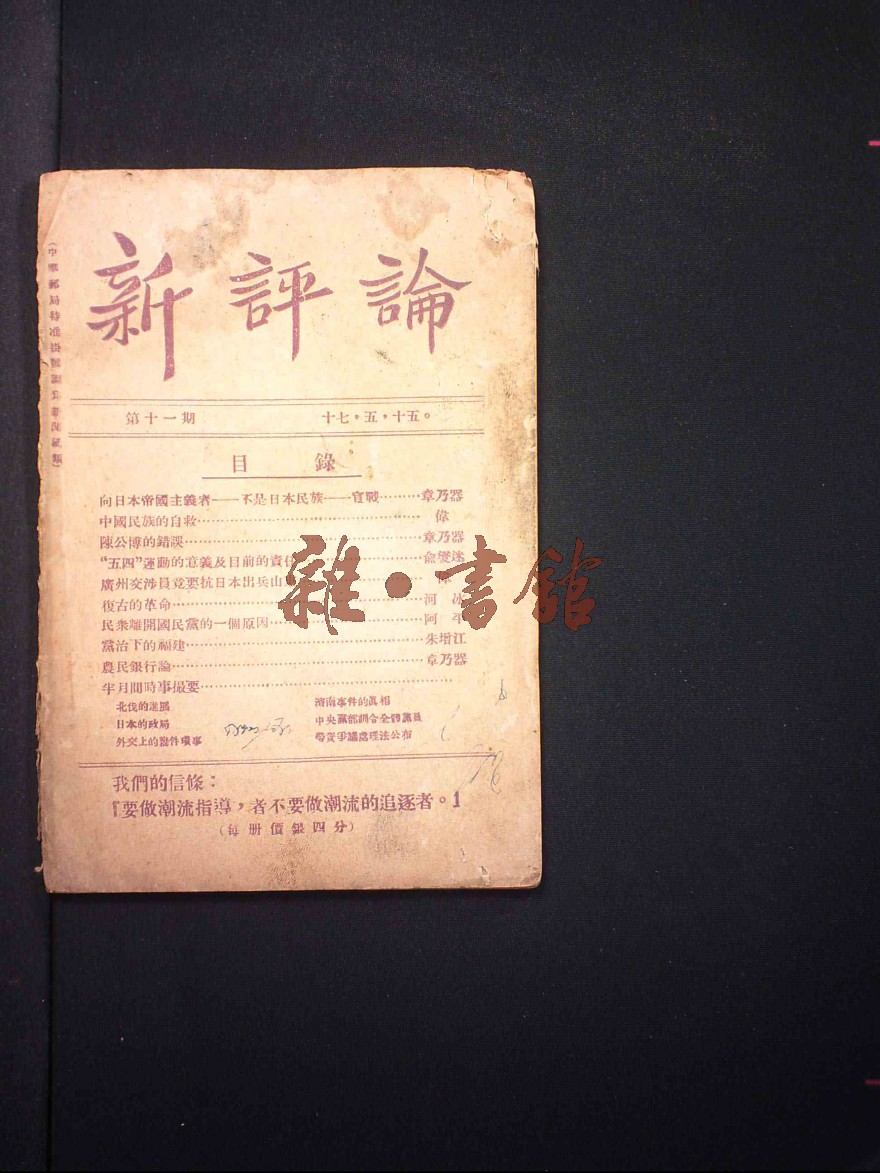 新評論
(中華郵局特准掛號認為新聞紙類)
第十一期 十七,五,十五。
目錄
向日本帝國主義者——不是日本民族——宣戰………章乃器
中國民族的自救………偉
陳公博的錯誤………章乃器
“五四”運動的意義及目前的責任………俞燮迷
廣州交涉員竟要抗日本出兵山
復古的革命………河冰
民衆離開國民黨的一個原因………阿平
黨治下的福建………朱增江
農民銀行論………章乃器
半月間時事撮要………
北伐的進展 濟南事件的眞相
日本的政局 中央黨部訓令全體黨員
外交上的幾件瑣事 勞資爭議處理法公布
我們的信條:
『要做潮流指導,者不要做潮流的追逐者。1
(每册價銀四分)
雜·書館